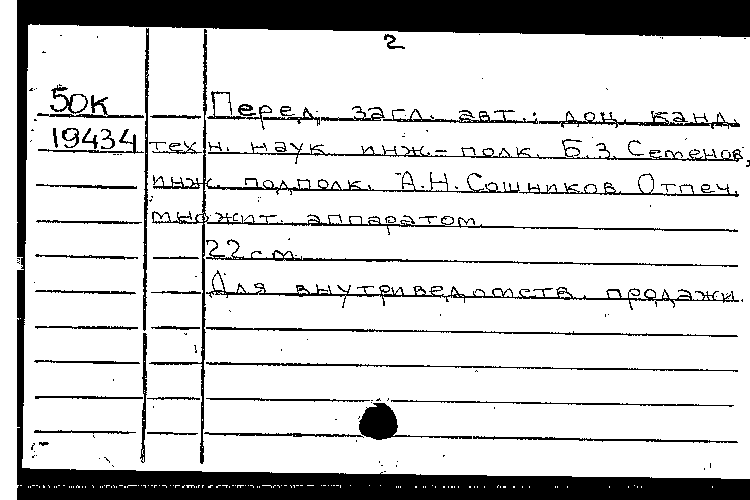 2
50К Перед загл. авт.: доц. канд.
19434 техн. наук инж.-полк. Б.З. Семенов,
инж. подполк. А.Н. Сошников. Отпеч.
множит. аппаратом.
22 см
Для внутриведомств. продажи.